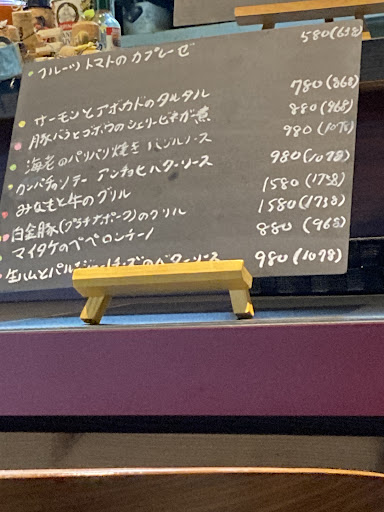 フルーツトマトのカプレーゼ 580(638)
サーモンとアボカドのタルタル 780(868)
豚バラとゴボウのシェリービネガー煮 880(968)
海老のパリパリ焼き バジルソース 980(1078)
カンパチのソテー アンチョビバターソース 980(1078)
みなもと牛のグリル 1580(1738)
白金豚(プラチナポーク)のグリル 1580(1738)
マイタケのペペロンチーノ 880(968)
生ハムと 980(1078)